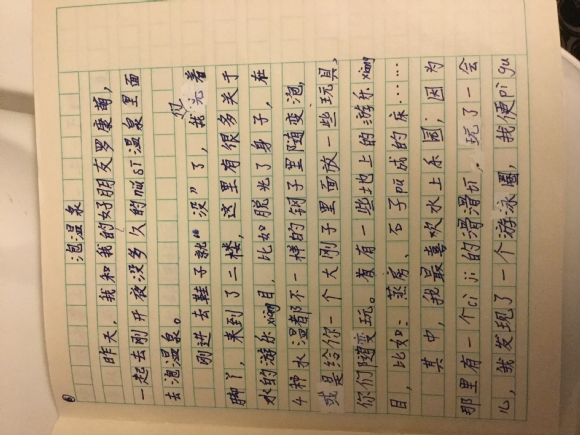 泡温泉
昨天，我和我的好朋友罗康甫，
一起去刚开夜没多久的mi si温泉里面
去泡温泉。
刚进去鞋子就“没”了，我光着
脚丫，来到了二楼，这里有很多关于
水的游乐xiang目，比如脱光了身子，在
4种水温都不一样的钢子里随变泡，
或是给你一个大刚子里面放一些玩具，
你们随变玩。首有一些地上的游乐xiang
目，比如：蒸房、石子而成的床……
其中，我最喜欢水上乐园，因为
那里有一个ci ji的滑滑坑，玩了一会
儿，我发现了一个游泳圈，我便pi gu